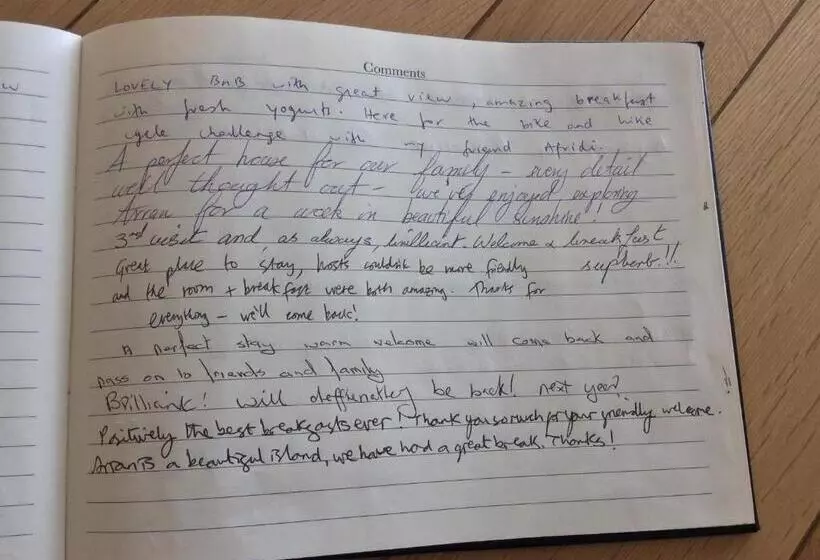 w
Comments
LOVELY BnB with great view, amazing breakfast
with fresh yogurts. Here for the bike and hike
cycle challenge with my friend Afridi.
A perfect house for our family - every detail
well thought out - we've enjoyed exploring
Arran for a week in beautiful sunshine!
3rd visit and, as always, brilliant. Welcome & breakfast
superb!!
Great place to stay, hosts couldn't be more friendly
and the room + breakfast were both amazing. Thanks for
everything - we'll come back!
A perfect stay warm welcome will come back and
pass on to friends and family
Brilliant! will deffienatley be back! next year
Positively the best breakfasts ever! Thank you so much for your friendly welcome.
Arran is a beautiful island, we have had a great break. Thanks!